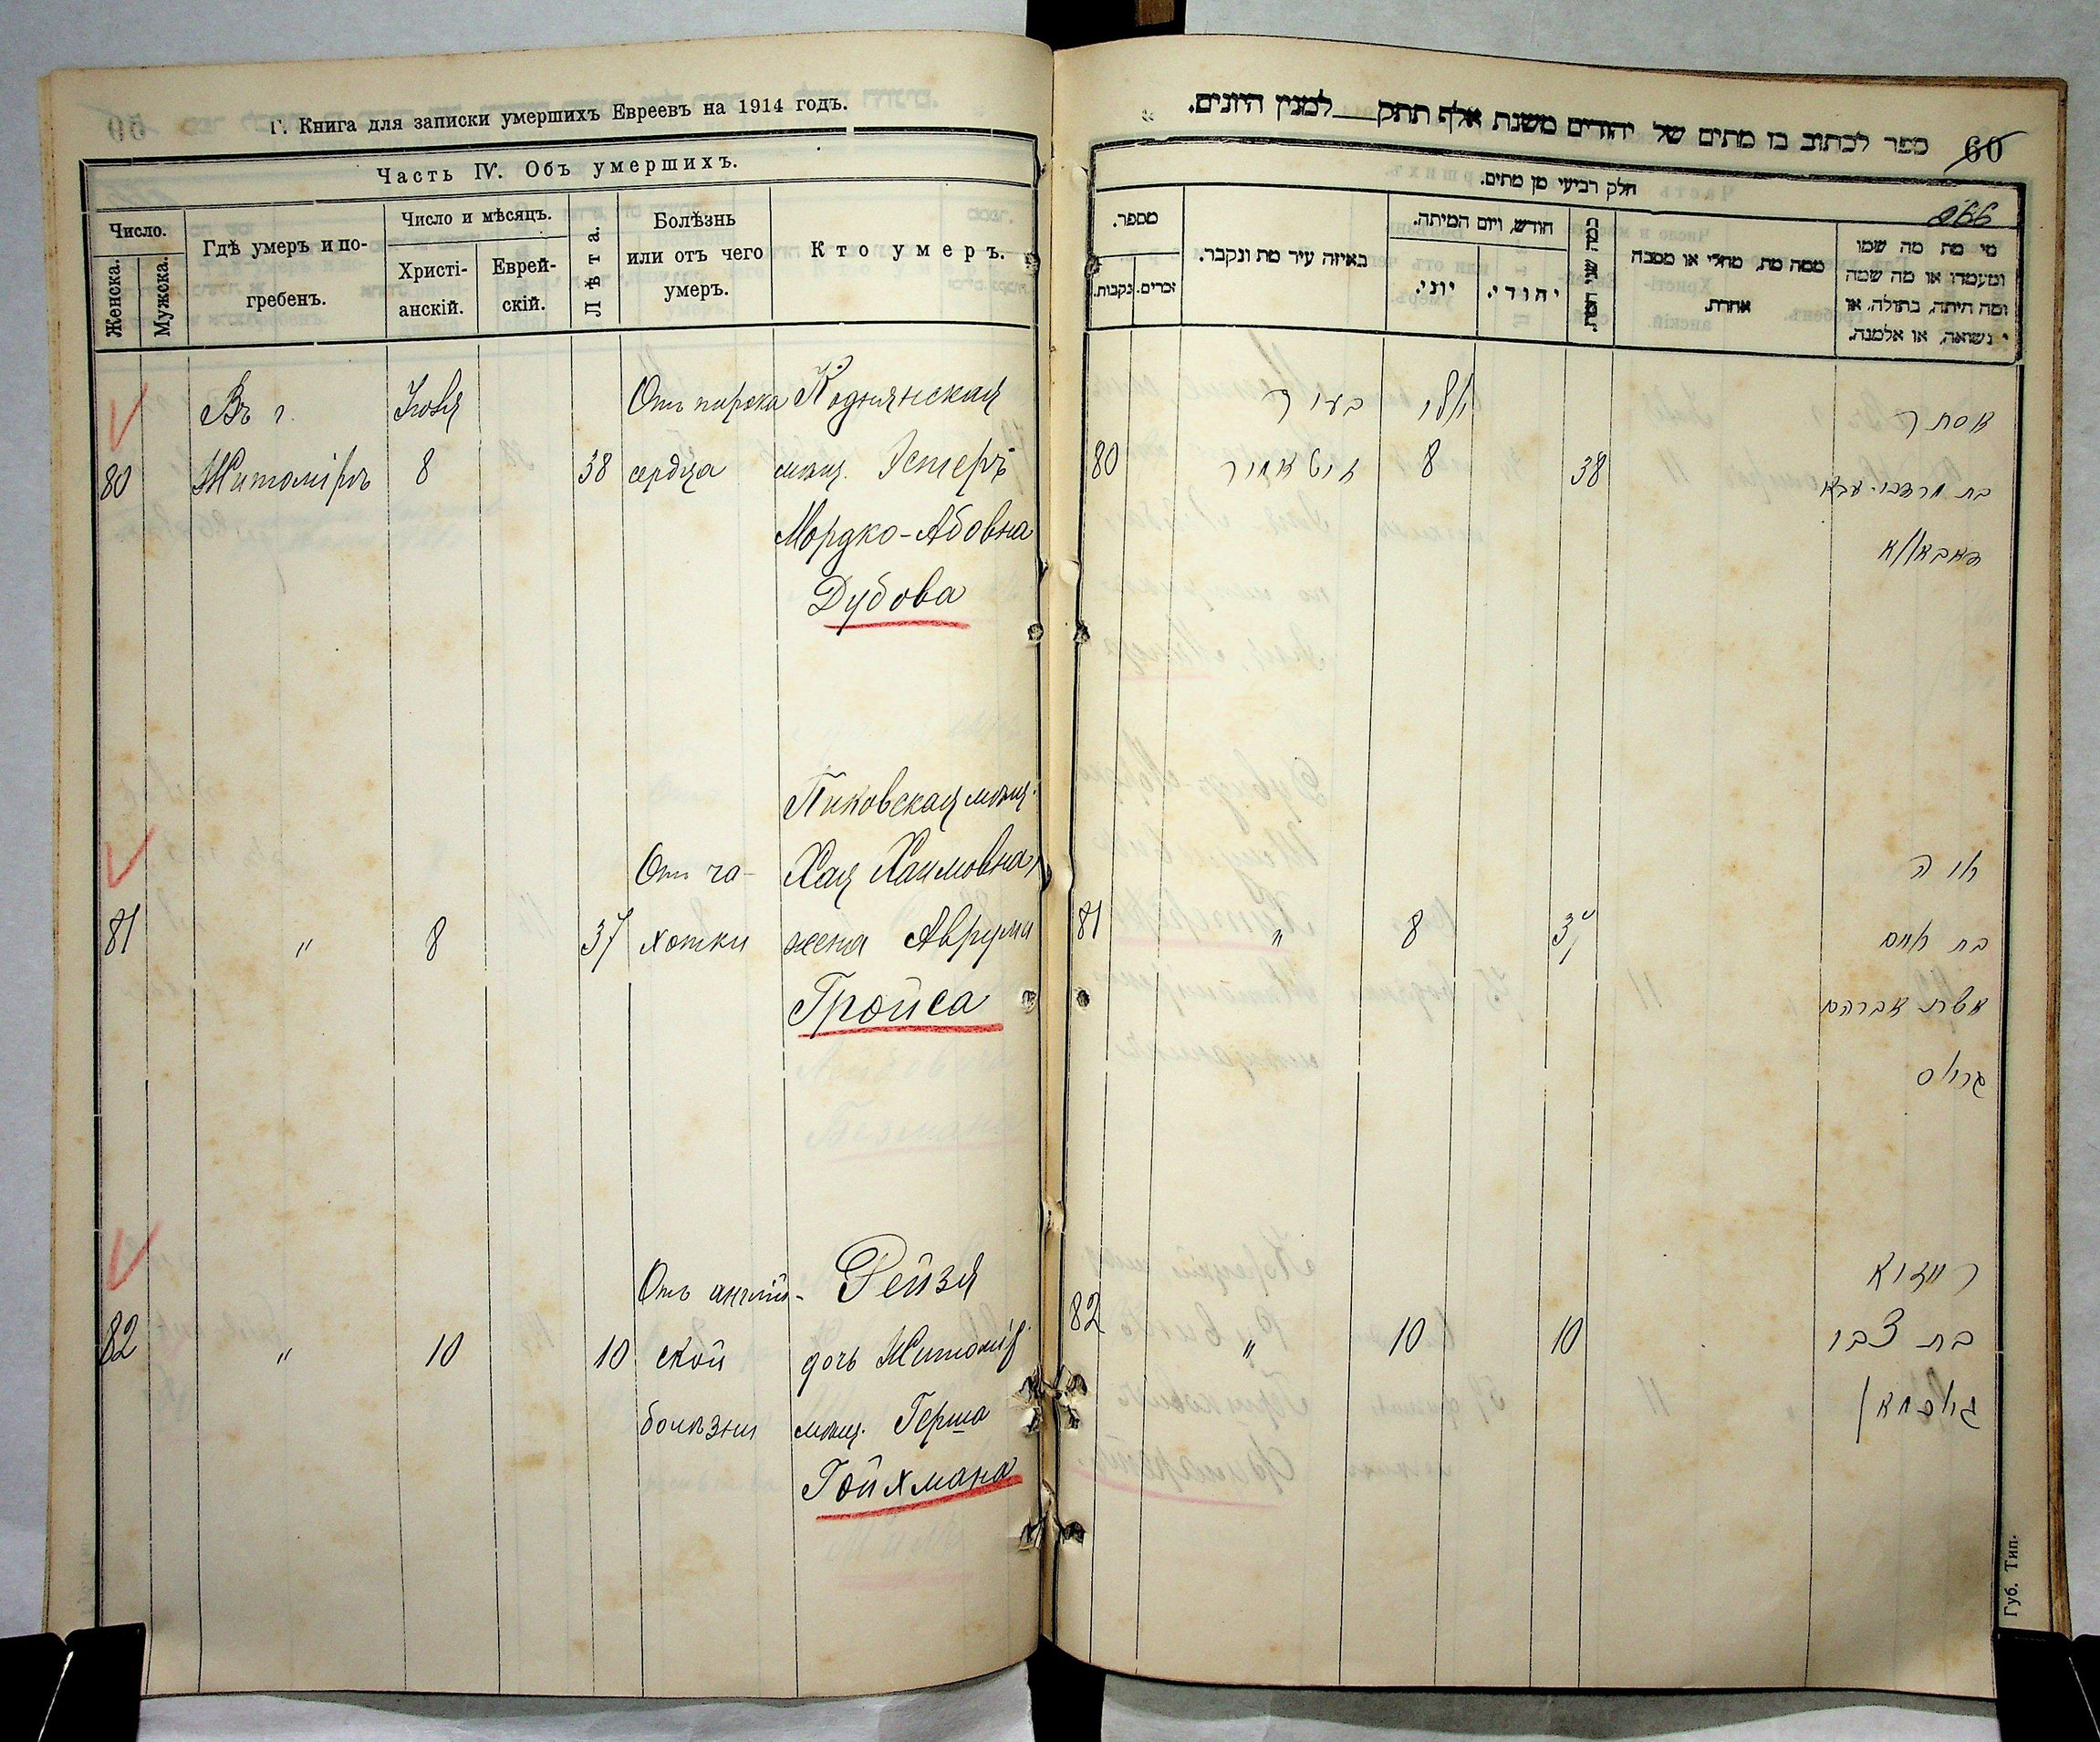 Г. Книга для записки умершихъ Евреевъ на 1914 годъ.
Часть IV. Объ умершихъ.
Число.
Женска.
Мужска.
Гдѣ умеръ и по-
гребенъ.
Число и мѣсяцъ.
Христі-
анскій.
Еврей-
скій.
Лѣта.
Болѣзнь
или отъ чего
умеръ.
Кто умеръ.
80
Въ г.
Житомірѣ
Іюля
8
38
Отъ порока
сердца
Кодня нская
мѣщ. Эстеръ
Мордко-Абовна
Дубова
81
"
8
37
Отъ ча-
хотки
Пиковская мѣщ.
Хая Хаимовна,
жена Аврума
Гройса
82
"
10
10
Отъ англій-
ской
болѣзни
Рейзя
дочь Житомір.
мѣщ. Герша
Гойхмана
60
ספר לכתוב בו מתים של יהודים משנת אלף תתק למנין היונים.
חלק רביעי מן מתים.
266
מספר.
נקבות.
זכרים.
באיזה עיר מת ונקבר.
חודש, ויום המיתה.
יוני.
יהודי.
כמה שני המת.
ממה מת, מחלי או מסבה
אחרת.
מי מת מה שמו
ומעמדו או מה שמה
ומה היתה, בתולה, או
נשואה, או אלמנה.
80
בעיר
זיטאמיר
יולי
8
38
אסתר
בת מרדכי אבא
81
"
8
37
חיה
בת חיים
אשת אברהם
גרויס
82
"
10
10
רייזיא
בת צבי
גויכמאן
Губ. Тип.